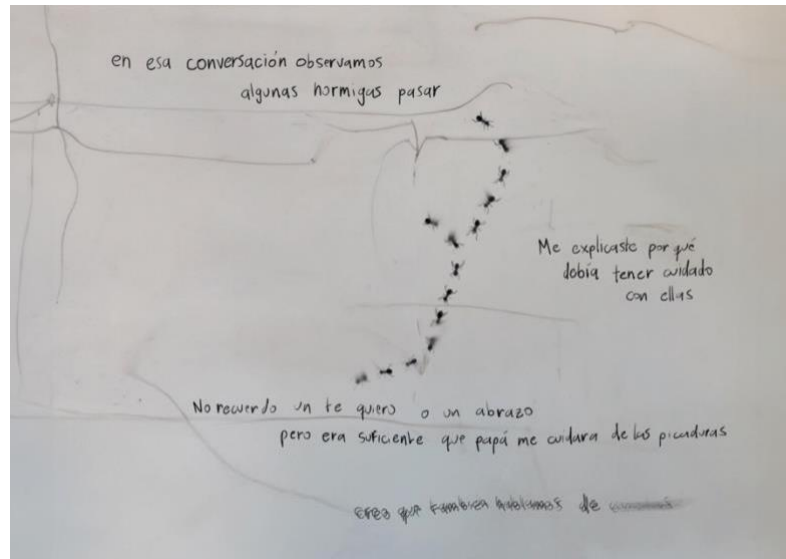 en esa conversación observamos
algunas hormigas pasar
Me explicaste por qué
dobía tener cuidado
con ellas
No recuerdo un te quiero o un abrazo
pero era suficiente que papá me cuidara de las picaduras
creo que también hablamos de